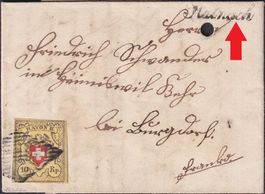 Herrn
Friedrich Schwander
in Heimiswil Kehr
bei Burgdorf.
franko
RAYON II
10 Rp.